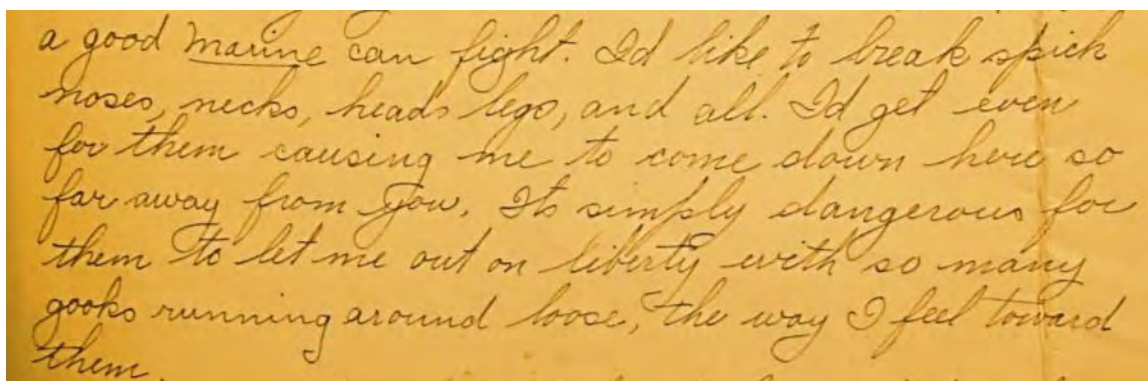 a good marine can fight. Id like to break spick
noses, necks, heads legs, and all. Id get even
for them causing me to come down here so
far away from you. Its simply dangerous for
them to let me out on liberty with so many
gooks running around loose, the way I feel toward
them.